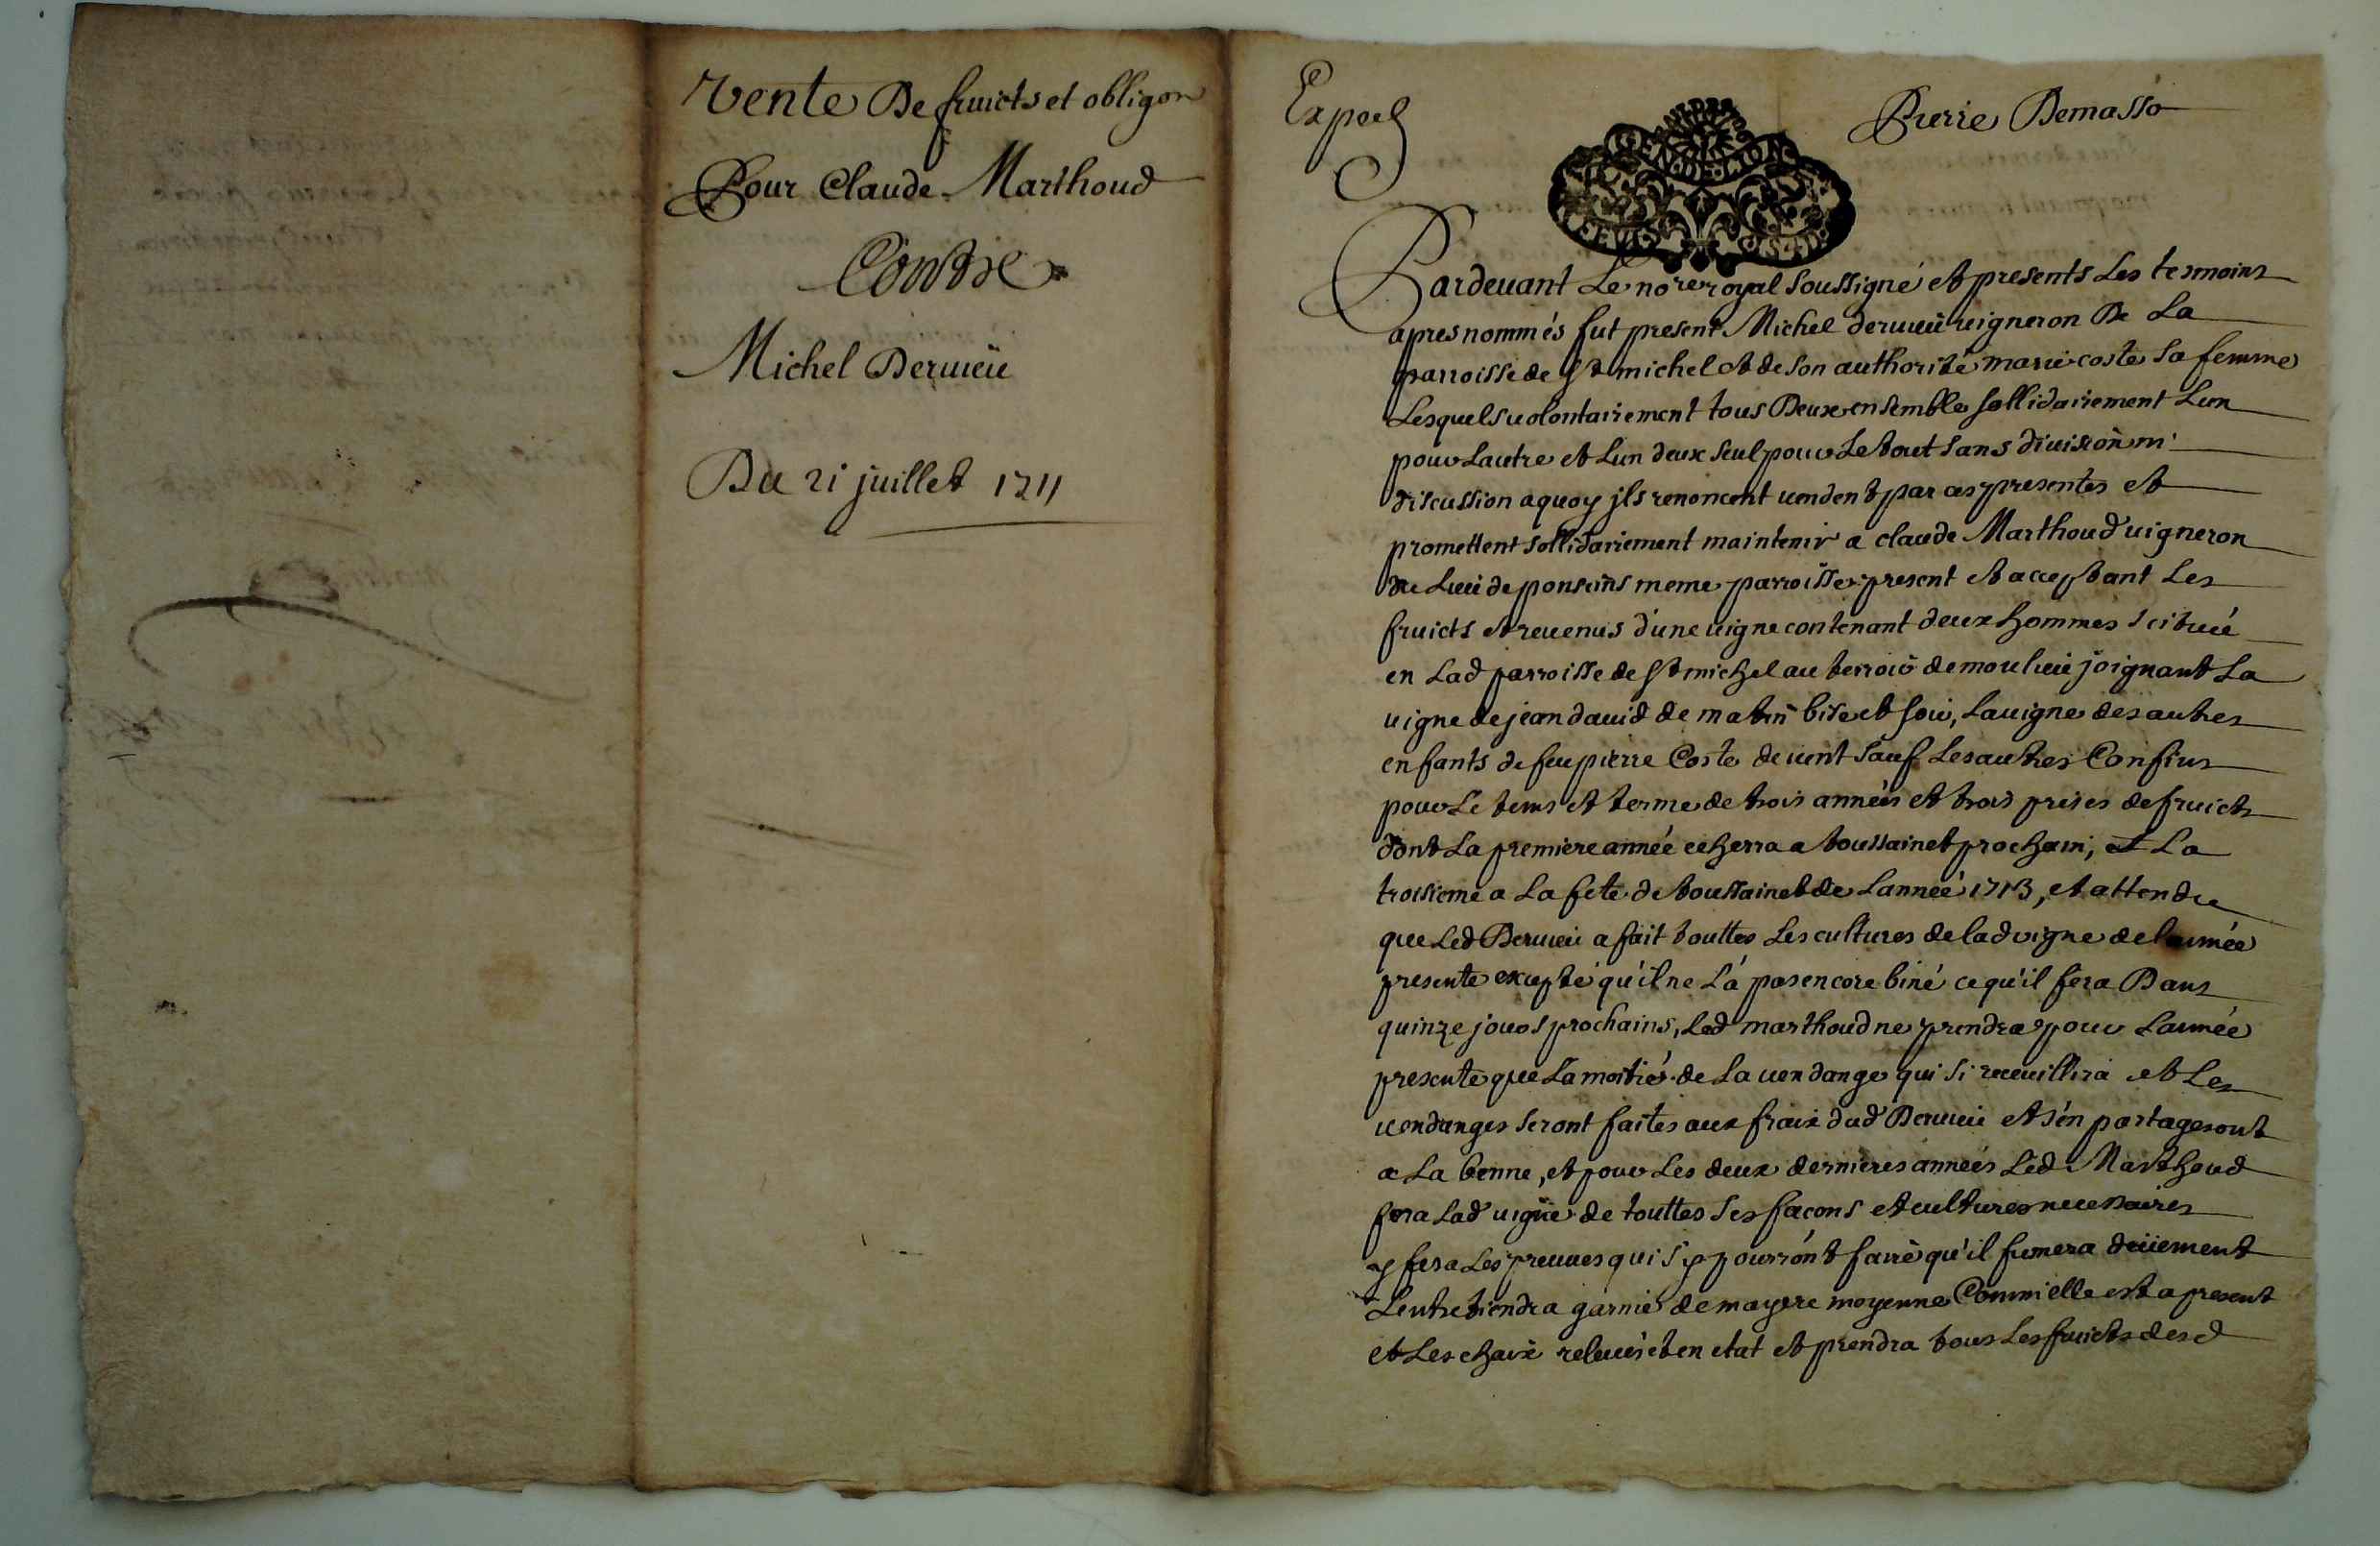 Vente De fruicts et obligon
Pour Claude Marthoud
Contre
Michel Deruieu
Du 21 juillet 1711
Exped
Pierre Demasso
GEN DE LION
DEUX SOLS
Pardeuant Le no.re royal Soussigné et presents Les tesmoins
apres nommés fut present Michel deruieu uigneron De La
parroisse de St michel et de Son authorité marie coste Sa femme
Lesquels uolontairement tous Deux ensemble Sollidairement Lun
pour Lautre et Lun deux Seul pour Le tout Sans diuision ni
discussion a quoy jls renoncent uendent par ces presentes et
promettent Sollidairement maintenir a claude Marthoud uigneron
du Lieu de ponseins meme parroisse present et acceptant Les
fruicts et reuenus d'une uigne contenant deux hommes Scituée
en Lad parroisse de St michel au terroir de moulieu joignant La
uigne de jean dauid de matin bise et soir, La uigne des autres
enfants de feu pierre Coste de uent Sauf Les autres Confins
pour Le tems et terme de trois années et trois prises de fruicts
dont La premiere année echerra a toussainct prochain, et La
troisieme a La fete de toussainct de Lannée 1713, et attendu
que Led Deruieu a fait touttes Les cultures de lad uigne de lannée
presente excepté qu'il ne L'a pas encore biné ce qu'il fera Dans
quinze jours prochains, Led marthoud ne prendra pour Lannée
presente que La moitié de La uendange qui Si receuillira et Les
uendanges Seront faites aux fraix dud Deruieu et S'en partageront
a La benne, et pour Les deux dernieres années Led Marthoud
fera Lad uigne de touttes Ses façons et cultures necessaires
y fera Les preuues qui S'y pourront faire qu'il fumera deüement
Lentretiendra garnie de mayere moyenne Comm'elle est a present
et Les chaix releués et en etat et prendra tous Les fruicts desd